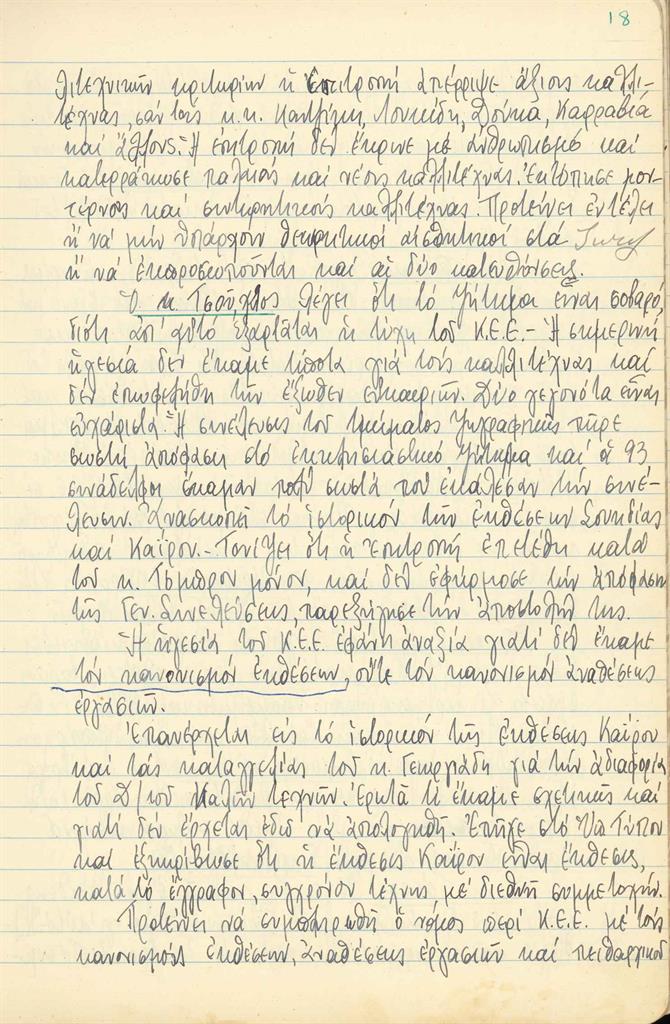 18
λιτεχνικῶν κριτηρίων ἡ Ἐπιτροπή ἀπέρριψε ἄξιους καλλι-
τέχνας, σάν τούς κ.κ. Λουκίδη, Δούκα, Καρραβία
καί ἄλλους. Ἡ ἐπιτροπή δέν ἔκρινε μέ ἀνθρωπισμό καί
κατερράκωσε παλιούς καί νέους καλλιτέχνας. Ἐκτόπισε μον-
τέρνους καί συντηρητικούς καλλιτέχνας. Προτείνει ἐν τέλει
ἤ νά μήν ὑπάρχουν θεωρητικοί αἰσθητικοί στά Jury
ἤ νά ἐκπροσωποῦνται καί αἱ δύο κατευθύνσεις.
Ὁ κ. Τσούχλος λέγει ὅτι τό ζήτημα εἶναι σοβαρό,
διότι ἀπ' αὐτό ἐξαρτᾶται ἡ τύχη τοῦ Κ.Ε.Ε.- Ἡ σημερινή
ἡγεσία δέν ἔκαμε τίποτα γιά τούς καλλιτέχνας καί
δέν ἐπωφελήθη τῶν ἔξωθεν εὐκαιριῶν. Δύο γεγονότα εἶναι
εὐχάριστα: Ἡ συνέλευσις τοῦ τμήματος ζωγραφικῆς πῆρε
σωστή ἀπόφαση στό ἐκκλησιαστικό ζήτημα καί οἱ 93
συνάδελφοι ἔκαμαν πολύ σωστά πού ἐκάλεσαν τήν συνέ-
λευσιν. Ἀνασκοπεῖ τό ἱστορικόν τῶν ἐκθέσεων Σουηδίας
καί Καΐρου.- Τονίζει ὅτι ἡ Ἐπιτροπή ἐπετέθη κατά
τοῦ κ. Τόμπρου μόνον, καί δέν ἐφήρμοσε τήν ἀπόφαση
τῆς Γεν. Συνελεύσεως, παρεξήγησε τήν ἀποστολή της.
Ἡ ἡγεσία τοῦ Κ.Ε.Ε. ἐφάνη ἀναξία γιατί δέν ἔκαμε
τόν κανονισμόν ἐκθέσεων, οὔτε τόν κανονισμόν ἀναθέσεως
ἐργασιῶν.
Ἐπανέρχεται εἰς τό ἱστορικόν τῆς ἐκθέσεως Καΐρου
καί τάς καταγγελίας τοῦ κ. Γεωργιάδη γιά τήν ἀδιαφορία
τοῦ Δ/τοῦ Καλῶν τεχνῶν. Ἐρωτᾶ τί ἔκαμε σχετικῶς καί
γιατί δέν ἔρχεται ἐδῶ νά ἀπολογηθῆ. Ἐπῆγε στό Ὑπ. Τύπου
καί ἐξηκρίβωσε ὅτι ἡ ἔκθεσις Καΐρου εἶναι ἔκθεσις,
κατά τό ἔγγραφον, συγχρόνου τέχνης μέ διεθνῆ συμμετοχήν.
Προτείνει νά συμπληρωθῆ ὁ νόμος περί Κ.Ε.Ε. μέ τούς
κανονισμούς ἐκθέσεων, ἀναθέσεως ἐργασιῶν καί πειθαρχικοῦ